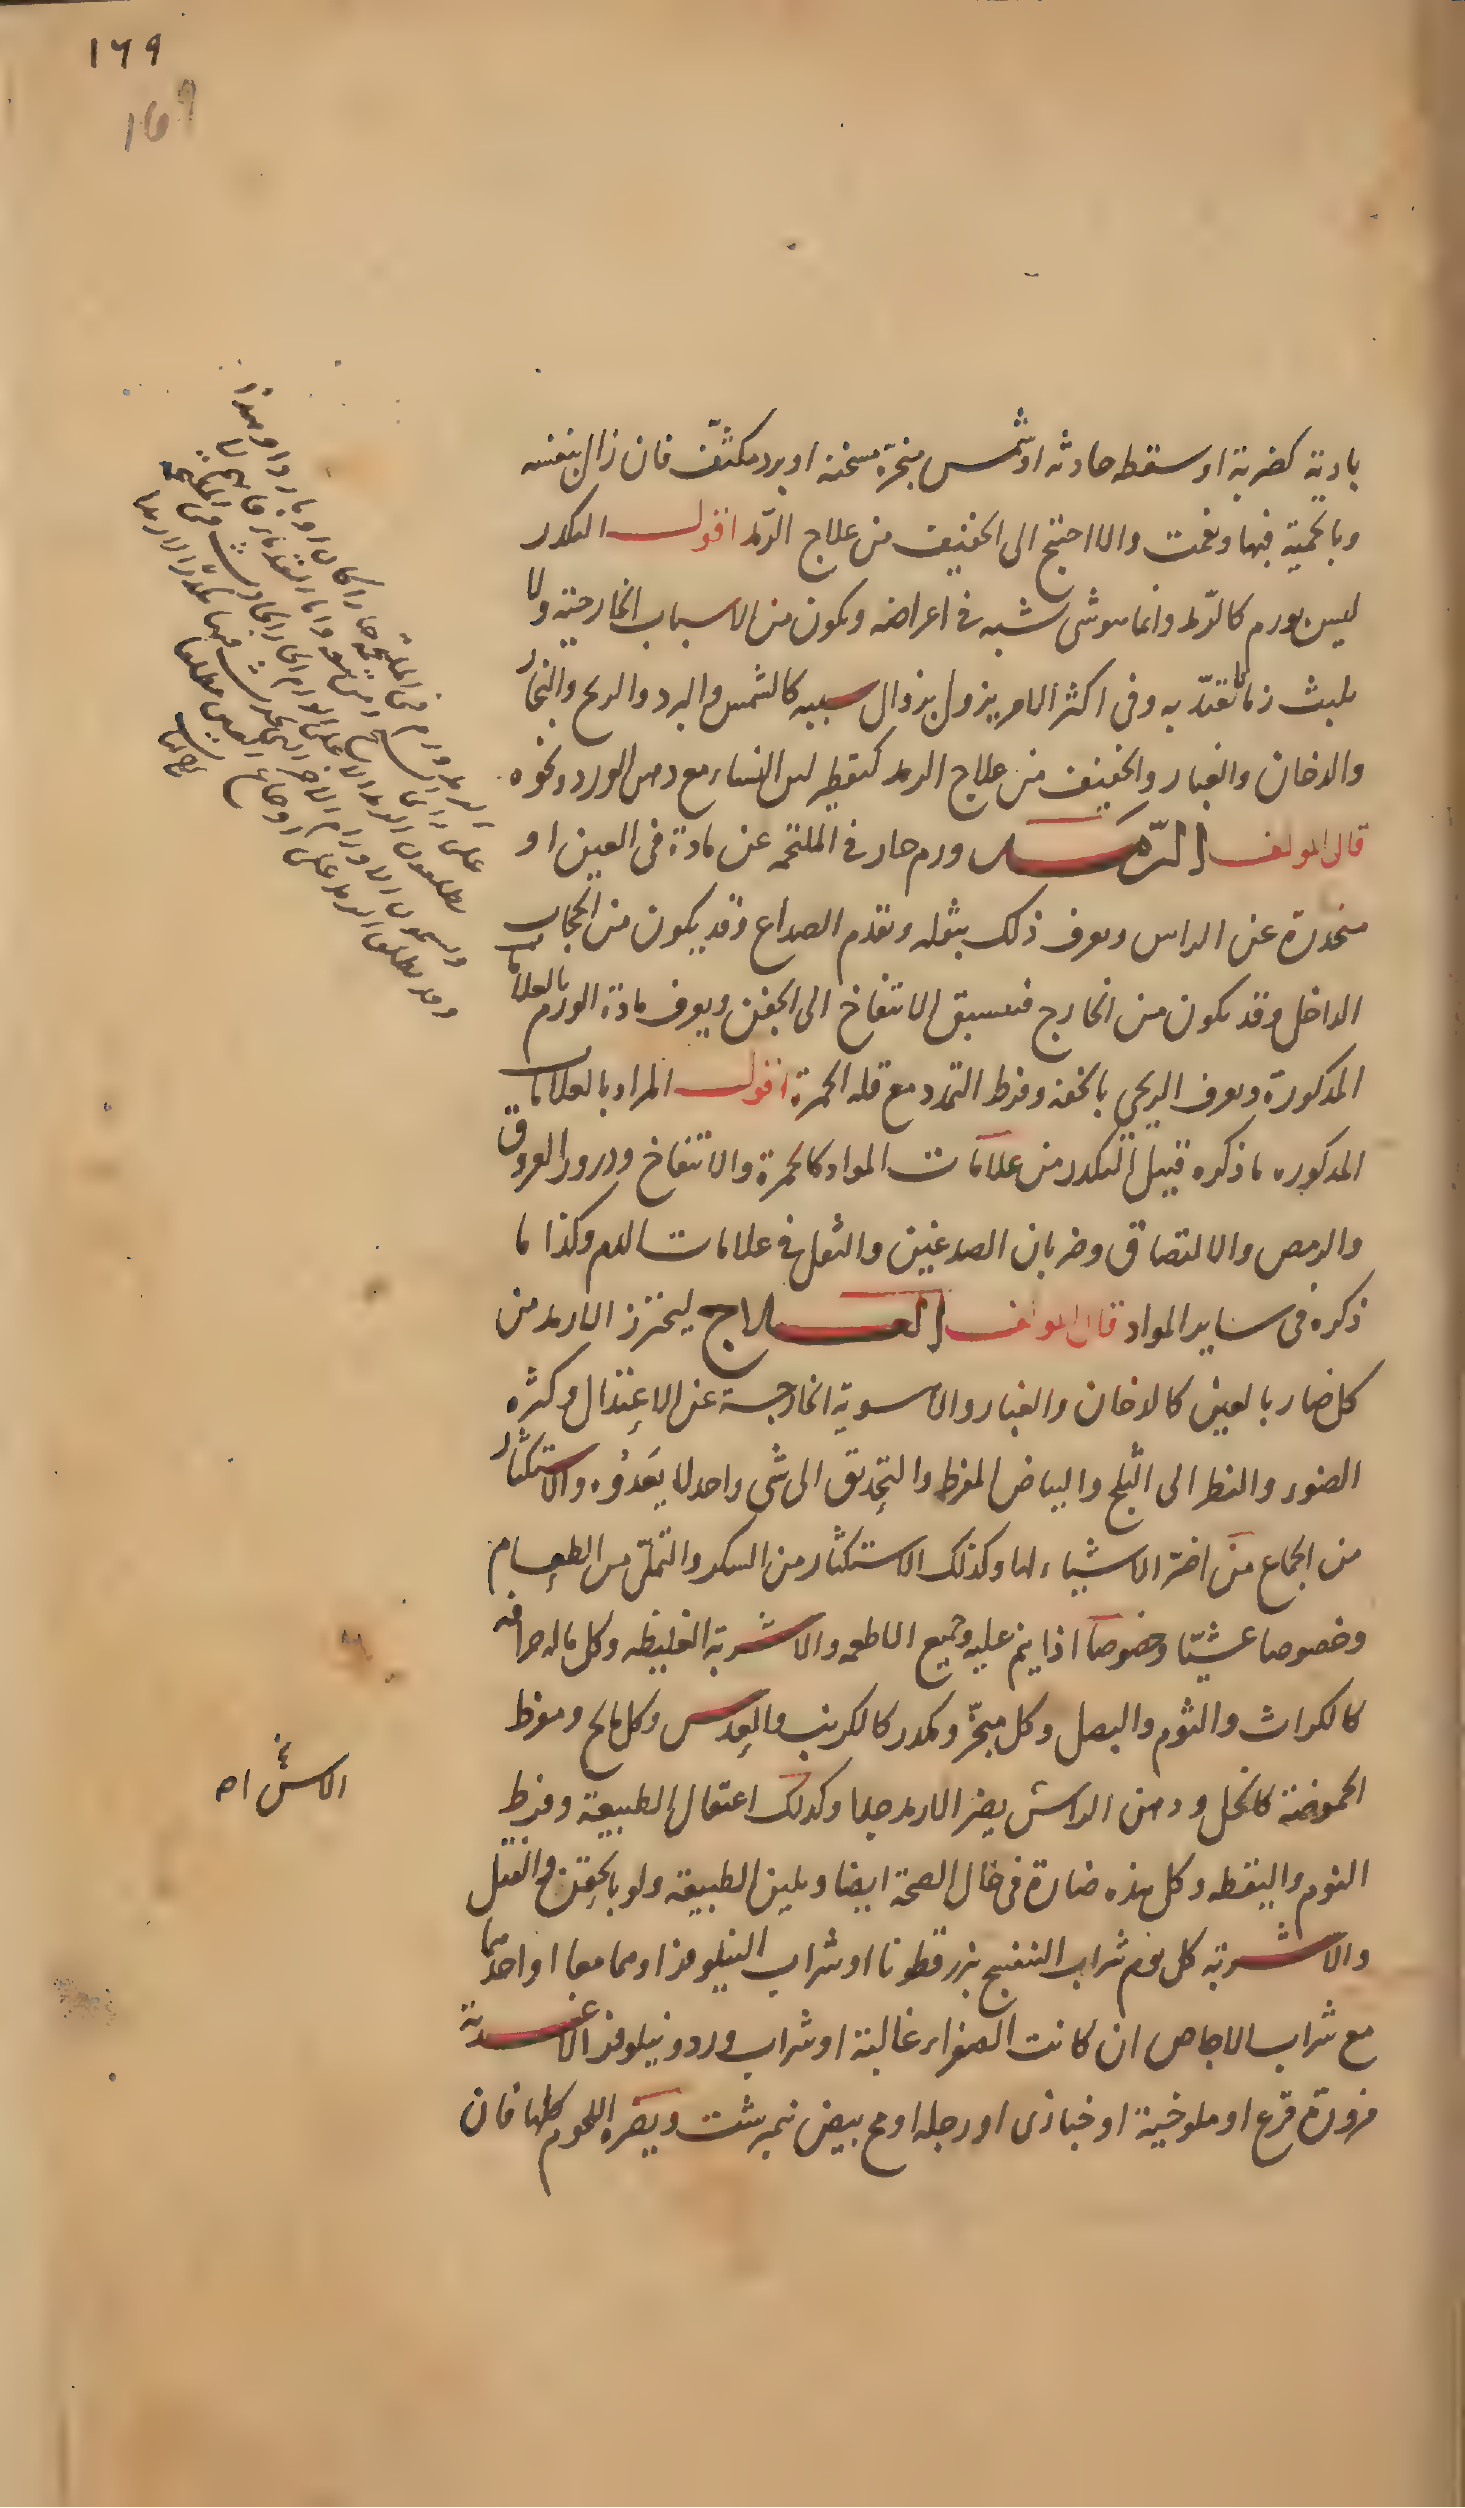 ١٦٩
169
بادية كضربة او سقطه حادثه او شمس مبخرة مسخنة او برد مكثف فان زال بنفسه
وبالحمية فبها ونعمت والا احتيج الى الخفيف من علاج الرمد اقول التكدر
ليس بورم كالرمد وانما هو شى يشبه فى اعراضه ويكون من الاسباب الخارجية ولا
يلبث زمانا يعتد به وفى اكثر الامر يزول بزوال سببه كالشمس والبرد والريح والبخار
والدخان والغبار والخفيف من علاج الرمد كتقطير لبن النساء مع دهن الورد ونحوه
قال المولف الرمد ورم حار فى الملتحمه عن مادة فى العين او
منحدرة عن الراس ويعرف ذلك بثقله وتقدم الصداع وقد يكون من الحجاب
الداخل وقد يكون من الخارج فيسبق الانتفاخ الى الجفن ويعرف مادة الورم بالعلامات
المذكورة ويعرف الريحى بالخفه وفرط التمدد مع قله الحمرة اقول المراد بالعلامات
المذكوره ما ذكره قبيل التكدر من علامات المواد كالحمرة والانتفاخ ودرور العروق
والرمص والالتصاق وضربان الصدغين والثقل فى علامات الدم وكذا ما
ذكره فى ساير المواد قال المولف العلاج ليحترز الارمد من
كل ضار بالعين كالدخان والغبار والاهوية الخارجة عن الاعتدال وكثره
الضوء والنظر الى الثلج والبياض المفرط والتحديق الى شى واحد لا يعدوه والاستكثار
من الجماع من اضر الاشياء لها وكذلك الاستكثار من السكر والتملى من الطعام
وخصوصا عشيا وخصوصا اذا ينم عليه وجميع الاطعمه والاشربة الغليظه وكل ماله حرافه
كالكراث والثوم والبصل وكل مبخر ومكدر كالكرنب والعدس وكل مالح ومفرط
الحموضة كالخل ودهن الراس يضر الارمد جدا وكذلك اعتقال الطبيعة وفرط
النوم واليقظه وكل هذه ضارة فى حال الصحة ايضا ويلين الطبيعة ولو بالحقن والفتل
والاشربة كل يوم شراب البنفسج ببزر قطونا او شراب النيلوفر او هما معا او احدهما
مع شراب الاجاص ان كانت الصفراء غالبة او شراب ورد ونيلوفر الاغدية
مزورة قرع او ملوخية او خبازى او رجله او مح بيض نيمبرشت ويضره اللحوم كلها فان